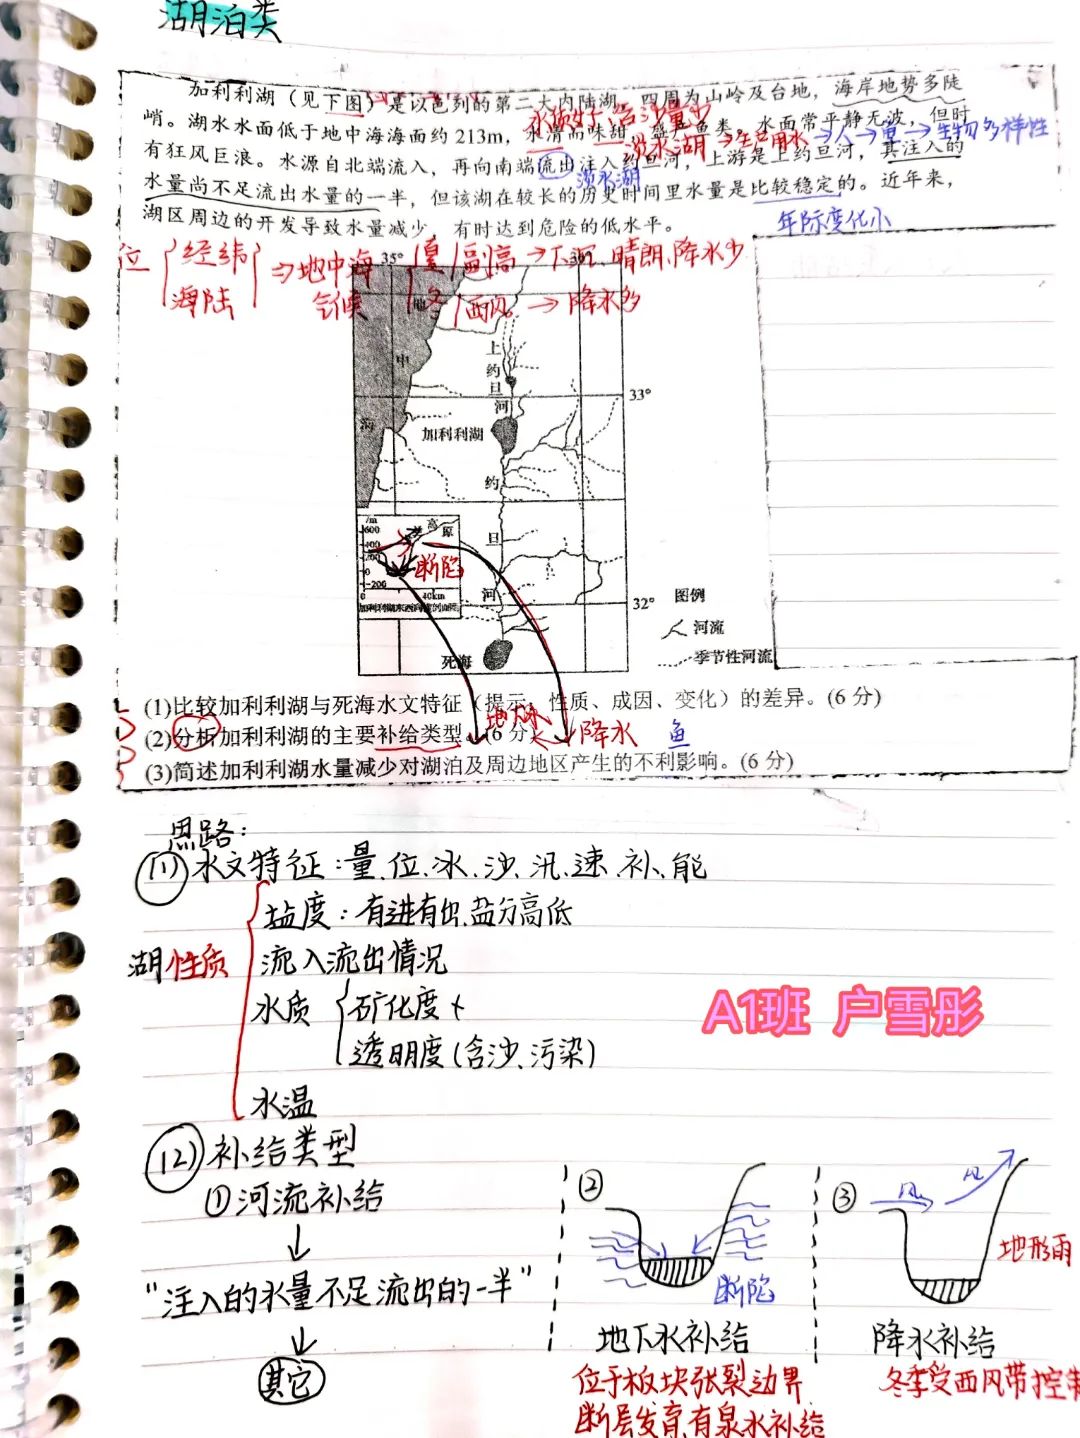 湖泊类
加利利湖（见下图）是以色列的第二大内陆湖，四周为山岭及台地，海岸地势多陡
水质好，含沙量少
峭。湖水水面低于地中海海面约213m，水清而味甜，盛产鱼类。水面常平静无波，但时
淡水湖→生活用水→人→量→生物多样性
有狂风巨浪。水源自北端流入，再向南端流出注入约旦河，上游是上约旦河，其注入的
淡水湖
水量尚不足流出水量的一半，但该湖在较长的历史时间里水量是比较稳定的。近年来，
湖区周边的开发导致水量减少，有时达到危险的低水平。
年际变化小
位 经纬 海陆 ⇒地中海气候
夏 副高→下沉、晴朗、降水少
冬 西风→降水多
35°
地
中
海
上
约
旦
河
33°
加利利湖
约
旦
河
32°
死海
/m
600
400
200
0
-200
高
原
断陷
0 40km
图例
河流
季节性河流
(1)比较加利利湖与死海水文特征（提示：性质、成因、变化）的差异。(6分)
(2)分析加利利湖的主要补给类型。(6分)
地下水
降水
鱼
(3)简述加利利湖水量减少对湖泊及周边地区产生的不利影响。(6分)
思路：
(1)水文特征：量、位、冰、沙、汛、速、补、能
湖性质
盐度：有进有出,盐分高低
流入流出情况
水质 矿化度
透明度(含沙、污染)
水温
A1班 户雪彤
(2)补给类型
①河流补给
↓
"注入的水量不足流出的一半"
↓
其它
②
断陷
地下水补给
位于板块张裂边界
断层发育,有泉水补给
③
风
地形雨
降水补给
冬季受西风带控制